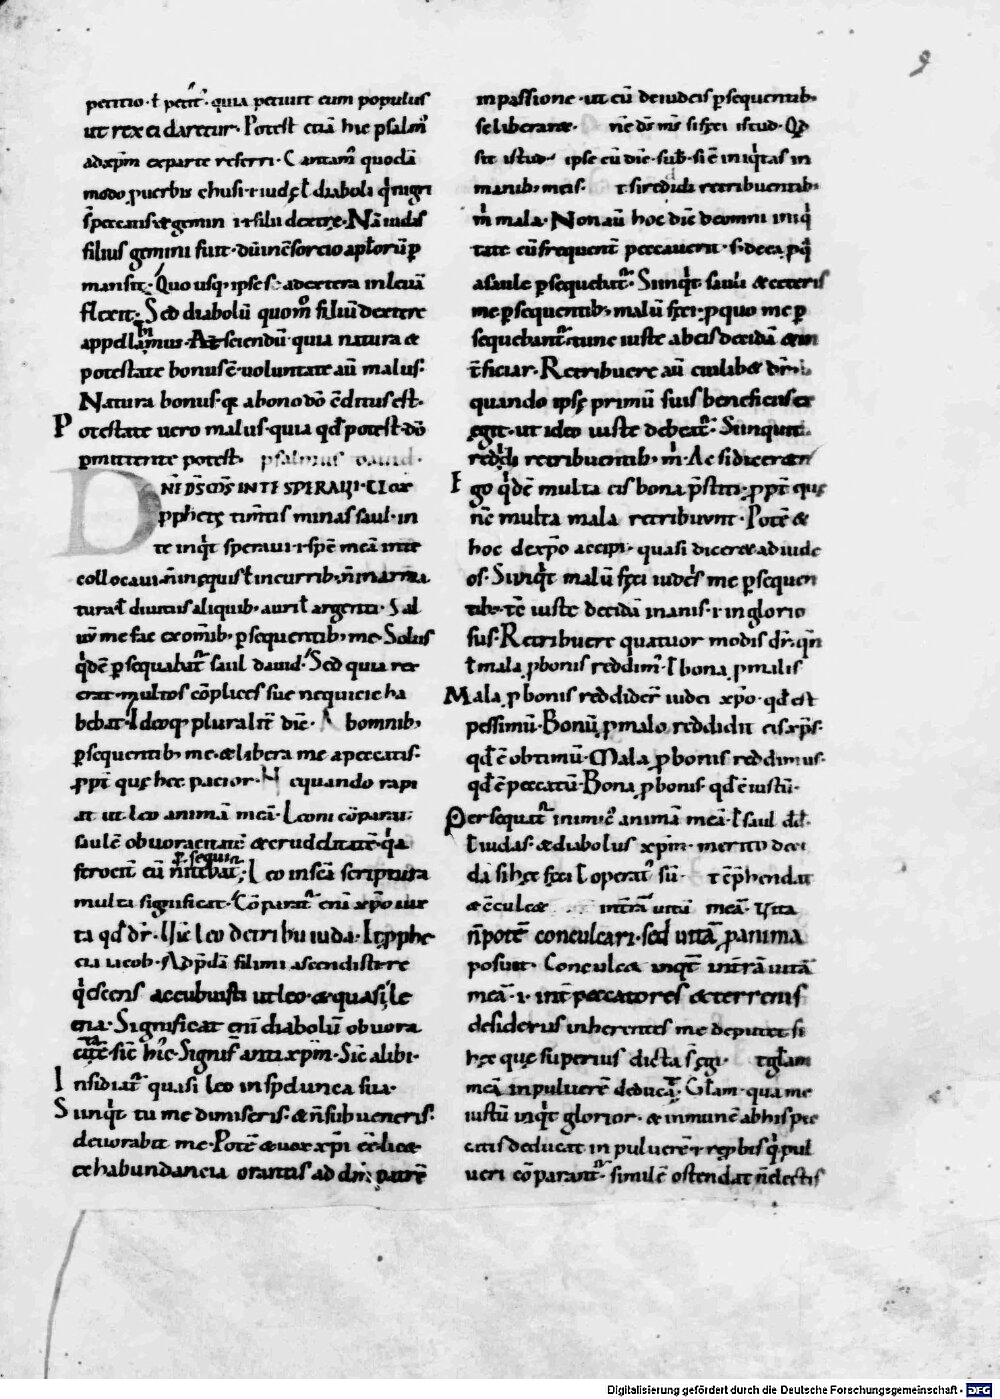 9
petitio · ł petit̃ · quia petiuit eum populus
ut rex ei daretur · Potest etiã hic psalm̃
ad xp̃m ex parte referri · Cantam̃ quodã
modo ꝓ uerbis chusi · i · iudę ł diaboli
filius gemini fuit · dũ in ɔsorcio apłorũ ꝑ
mansit · Quo usq; ipse se ad extera in leuã
flexit · Sed diabolũ quom̊ filiũ dextere
appellamus · At sciendũ quia natura &
potestate bonus ẽ · uoluntate aũ malus ·
Natura bonus · quia a bono dõ ɔditus est ·
Potestate uero malus · quia qđ potest · dõ
ꝑmittente potest · psalmus dauid ·
DÑE D̃S M̃S IN TE SPERAUI ·
ꝓpheta timẽtis minas saul · in
te inqͥt speraui · i · spẽ meã in te
collocaui · ñ in equis ł in currib; ñ in arma
tura ł diuitiis aliquib; auri ł argenti · Sal
uũ me fac ex om̃ib; ꝑsequentib; me · Solus
qͥdẽ ꝑsequebat̃ saul dauid · Sed quia rex
erat · multos cõplices sue nequicie ha
bebat · Ideoq; pluralit̃ dic̃ · Ab omnib;
ꝑsequentib; me · & libera me a peccatis ·
ꝓpt̃ quę hec pacior · Ne quando rapi
at ut leo animã meã · Leoni cõparat
saulẽ ob uoracitatẽ & crudelitatẽ · qͥa
ferocit̃ eũ ꝑsequi nitebat̃ · Leo in scã scriptura
multa significat · Cõparat̃ eni xp̃o iux
ta qđ dr̃ · Uic̃ leo de tribu iuda · It̃ ꝓphe
cia iacob · Ad p̃dã filimi ascendisti re
qͥescens accubuisti ut leo · & quasi le
ena · Significat eni diabolũ ob uora
citatẽ · sic̃ hic · Signif̃ antixp̃m · Sic̃ alibi ·
Insidiat̃ quasi leo in spelunca sua ·
Si inqͥt tu me dimiseris · & ñ subueneris ·
deuorabit me · Potẽ & uox xp̃i
ce habundancia orantis ad dm̃ patrẽ
in passione · ut eũ de iudeis ꝑsequentib;
se liberaret · Dñe d̃s m̃s si feci istud · Qđ
sit istud · ipse eũ dic̃ · sub · si ẽ iniqͥtas in
manib; meis · Si reddidi retribuentib;
m̃ mala · Non aũ hoc dic̃ de omni iniqͥ
tate eũ frequent̃ peccauerit · s; de ea ꝓ qͣ
a saule ꝑsequebat̃ · Si inqͥt sauli & ceteris
me ꝑsequentib; malũ feci · ꝓ quo me ꝑ
sequebant̃ · tunc iuste ab eis decidã & in
t̃ficiar · Retribuere aũ cuilib&
quando ipsę primũ suis beneficiis ex
egit · ut ideo iuste debeat̃ · Si inquit
reddidi retribuentib; m̃ · Ac si dicer&
Ego qͥdẽ multa eis bona p̃stiti · ꝓpt̃ quę
ñ multa mala retribuunt · Potẽ &
hoc de xp̃o accipi · quasi diceret ad iude
os · Si inqͥt malũ feci iudeis me ꝑsequen
tib; tc̃ iuste decidã inanis · i · inglorio
sus · Retribuere quatuor modis dr̃ · qñ
ł mala ꝓ bonis reddim̃ · ł bona ꝓ malis
Mala ꝓ bonis reddider̃ iudei xp̃o · qđ est
pessimũ · Bonũ ꝓ malo reddidit eis xp̃s ·
qđ ẽ obtimũ · Mala ꝓ bonis reddimus ·
qđ ẽ peccatũ · Bona ꝓ bonis · qđ ẽ iustũ ·
Persequat̃ inimic̃ animã meã · ł saul
ł iudas · & diabolus xp̃m · merito deci
dã si hęc feci ł operat̃ sũ · & cõp̃hendat
& ɔculc& in t̃ra uitã meã · Uita
ñ potẽ conculcari · sed uita ꝓ anima
posuit · Conculc& inqͥt in t̃ra uitã
meã · i · int̃ peccatores & terrenis
desideriis inherentes me deputet si
hęc quę superius dicta s̃ egi · & głam
meã in puluerẽ deducat̃ · Głam · qua me
iustũ inqͥt glorior · & inmunẽ ab his pec
catis deducat in puluerẽ · i · rebis qͥ pul
ueri cõparant̃ · similẽ ostendat ñ electis
Digitalisierung gefördert durch die Deutsche Forschungsgemeinschaft - DFG